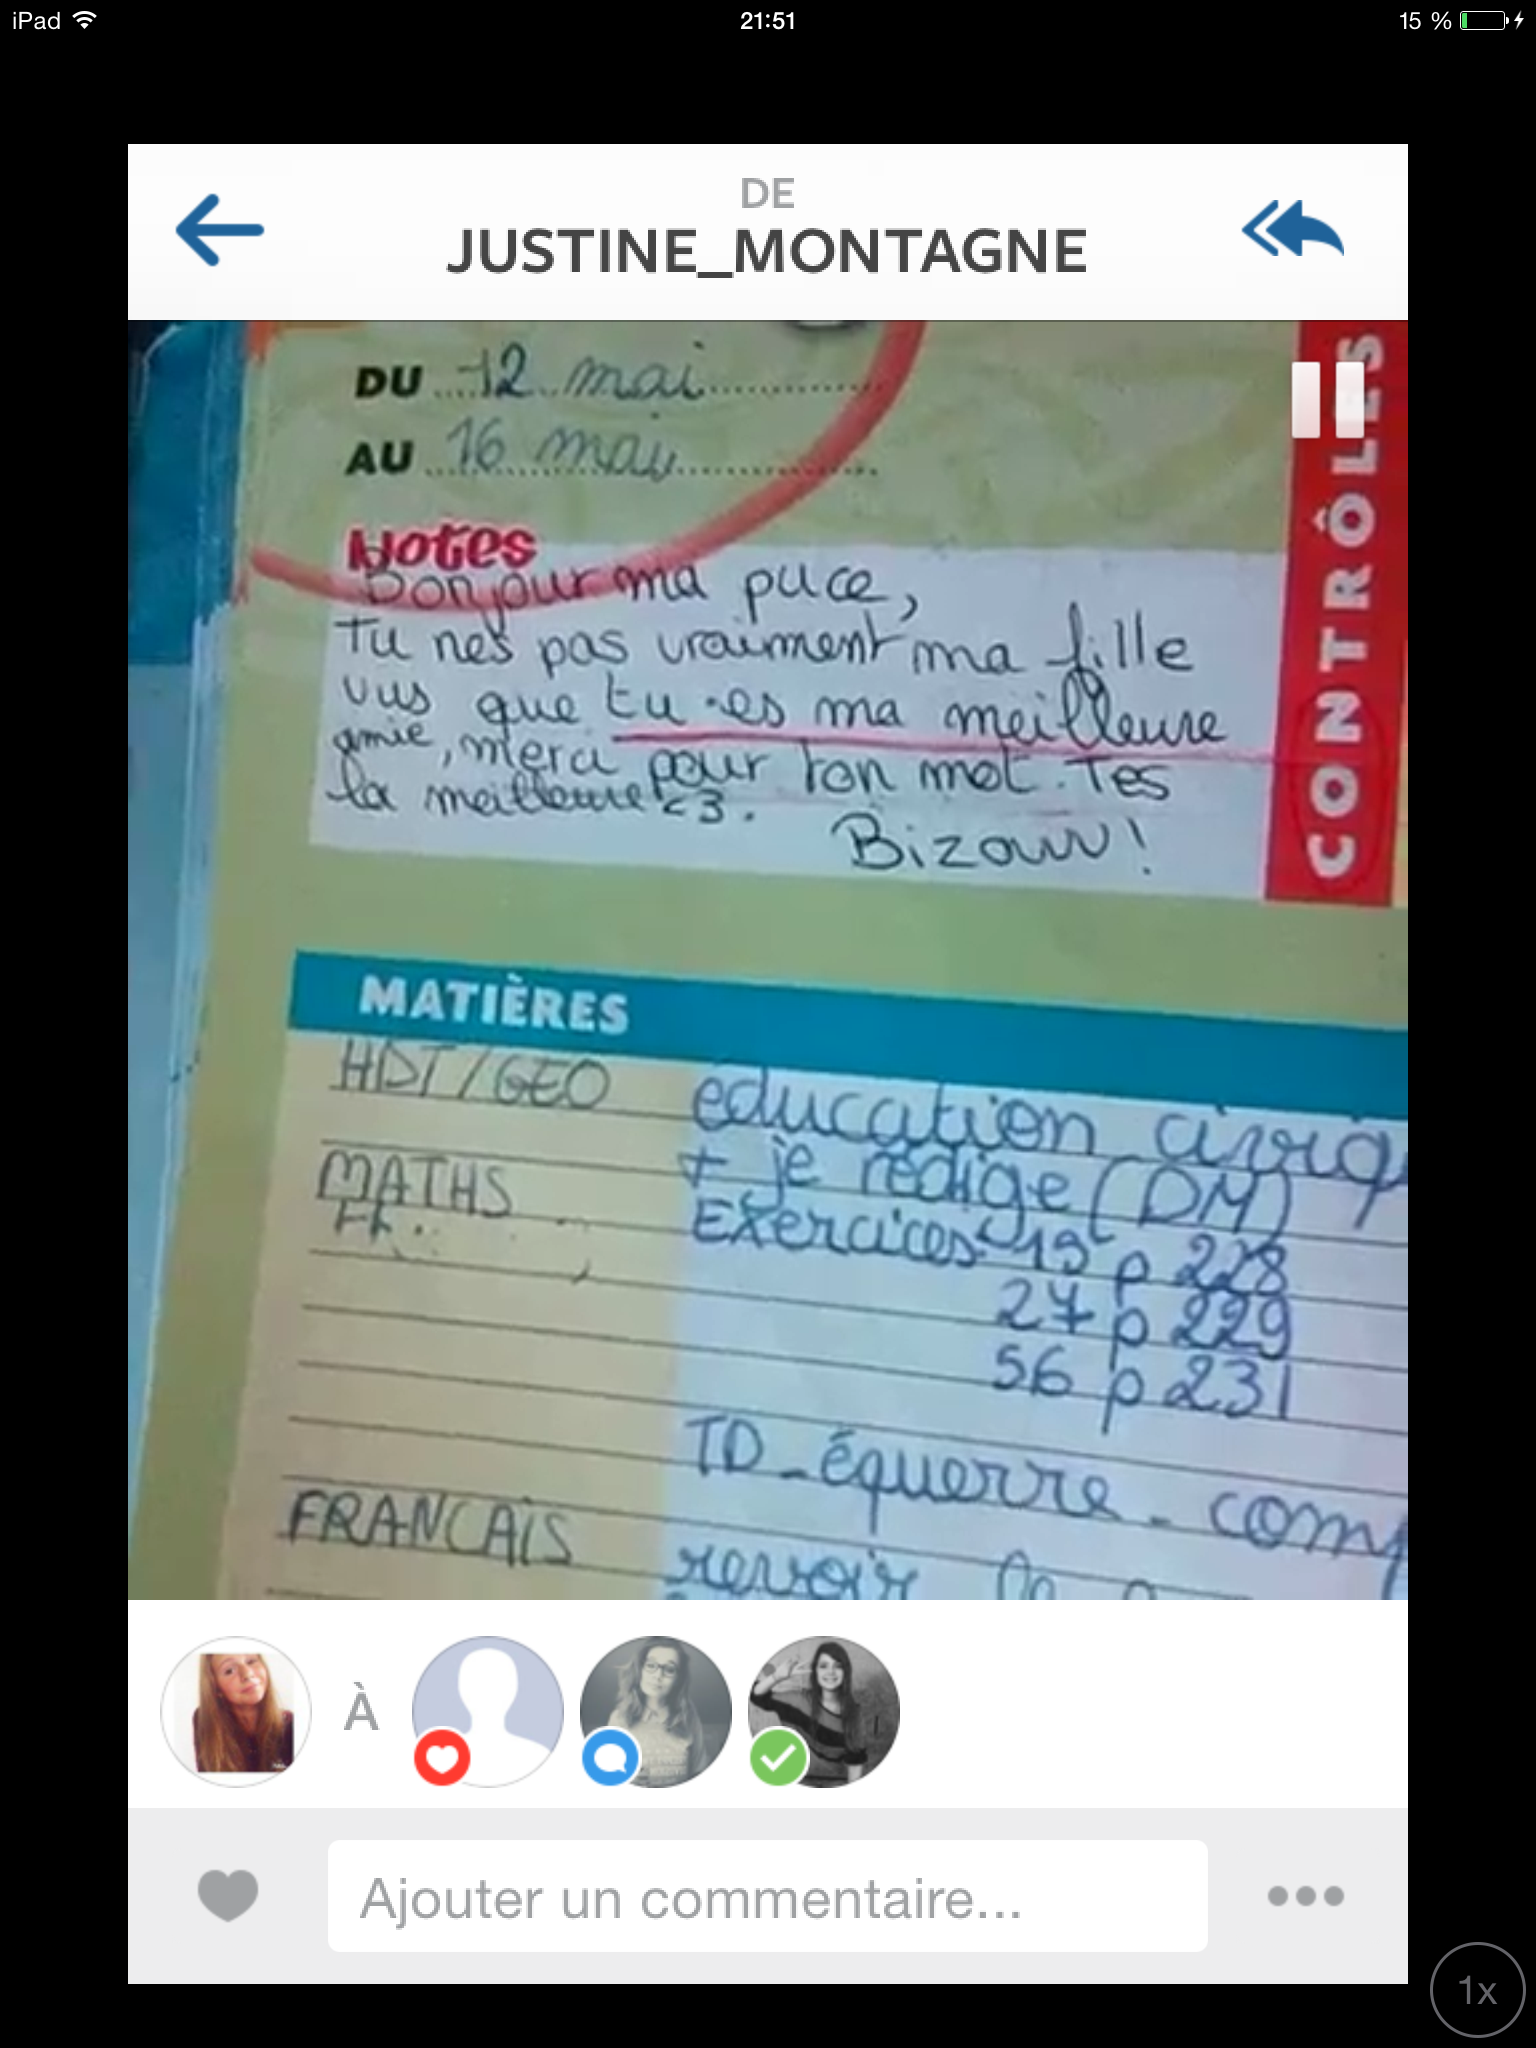 iPad
21:51
15 %
DE
JUSTINE_MONTAGNE
DU 12 mai
AU 16 mai
CONTRÔLES
Notes
Bonjour ma puce,
Tu nes pas vraiment ma fille
vus que tu es ma meilleure
amie, merci pour ton mot. Tes
la meilleure <3.
Bizouw!
MATIÈRES
HIST/GEO éducation civiq
+ je rédige (DM)
MATHS Exercices 19 p 228
27 p 229
56 p 231
TD_équerre_com
FRANCAIS revoir
À
Ajouter un commentaire...
1x